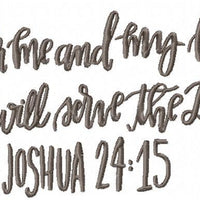 me and my
will serve the
JOSHUA 24:15